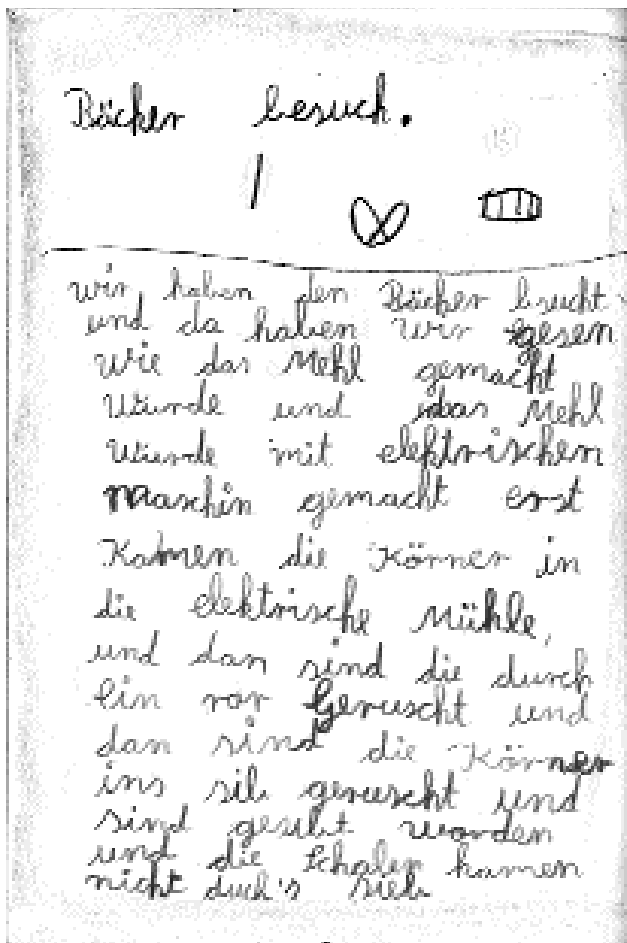 Bäcker besuch.
wir haben den Bäcker bsucht
und da haben wir gesen
wie das Mehl gemacht
wurde und das Mehl
wurde mit elektrischen
maaschin gemacht erst
Kamen die Körner in
die elektrische Mühle,
und dan sind die durch
ein ror Geruscht und
dan sind die Körner
ins sib geruscht und
sind gesibt worden
und die Schalen kamen
nicht duch's sieb